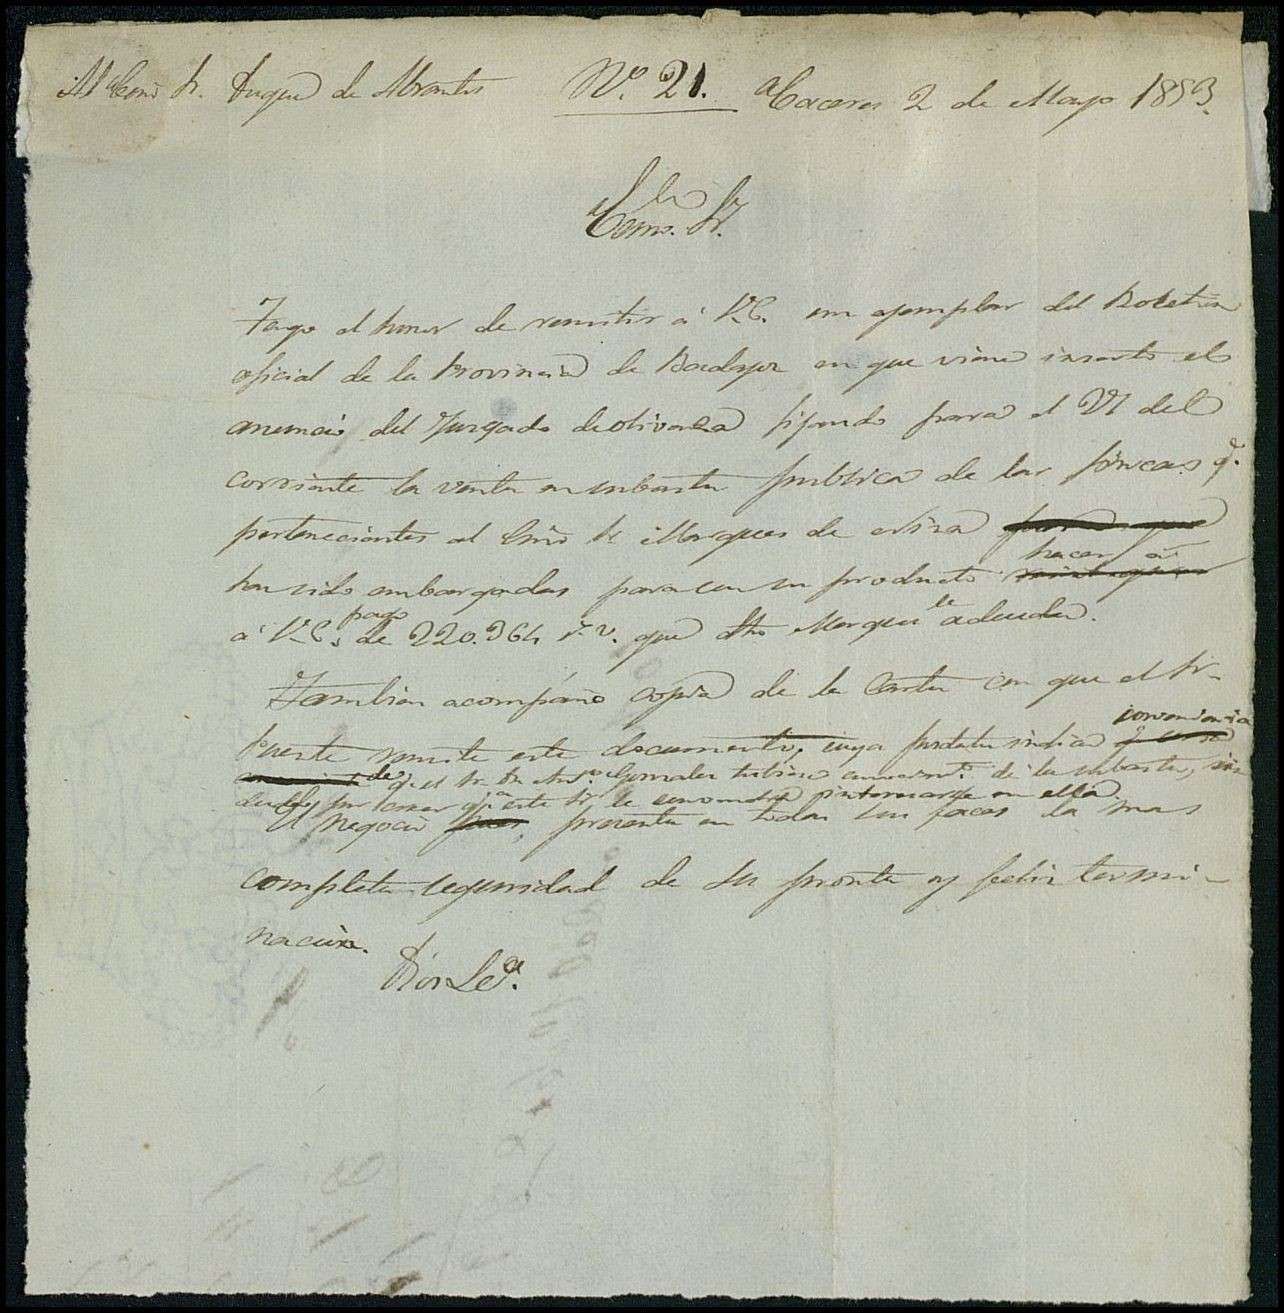 Al Exmo Sr. Duque de Abrantes Nº. 21. Caceres 2 de Mayo 1853.
Exmo. Sr.
Tengo el honor de remitir á V.E. un ejemplar del Boletin
oficial de la Provincia de Badajoz en que viene inserto el
anuncio del Juzgado de Olivenza fijando para el 21 del
corriente la venta en subasta publica de las fincas q.e
pertenecientes al Exmo Sr Marques de
han sido embargadas para con su producto hacer
á V.E. pago de 220.264 r.v. que dho Marques le adeuda.
Tambien acompaño copia de la Carta con que el Sr.
Puente remite este documento, cuya postdata indica conveniencia
de q.e el Sr. Dn Ant.o Gonzalez tubiese conocim.to de la subasta, sin
duda por creer q.e a este Sr. le convendra interesarse en ella.
El negocio presenta en todas sus faces la mas
completa seguridad de su pronta y feliz termi-
nacion.
Dios &.a